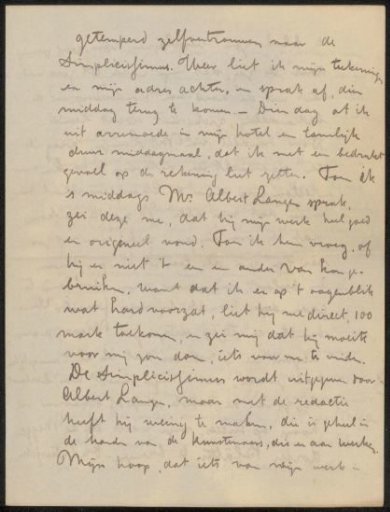 getemperd zelfvertrouwen naar de
Simplicissimus. Weer liet ik mijn tekeningen
en mijn adres achter, en sprak af, dien
middag terug te komen — Dien dag at ik
uit armoede in mijn hotel een tamelijk
duur middagmaal, dat ik met een bedrukt
gevoel op de rekening liet zetten. Toen ik
's middags Mr. Albert Langen sprak,
zei deze me, dat hij mijn werk heel goed
en origineel vond. Toen ik hem vroeg, of
hij er niet 't een en ander van kon ge-
bruiken, want dat ik er op 't oogenblik
wat hard voorzat, liet hij me direct 100
mark toekomen, en zei mij dat hij moeite
voor mij zou doen, iets voor me te vinden.
De Simplicissimus wordt uitgegeven door
Albert Langen, maar met de redactie
heeft hij weinig te maken, die is geheel in
de handen van de kunstenaars, die er aan werken.
Mijn hoop, dat iets van mijn werk